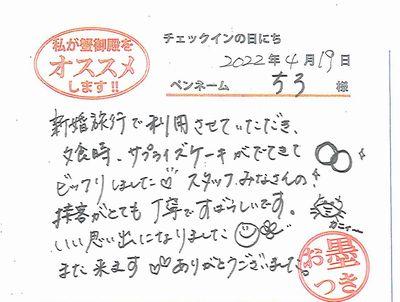 私が蟹御殿を
オススメ
します!!
チェックインの日にち
2022年4月19日
ペンネーム ちろ 様
新婚旅行で利用させていただき、
夕食時、サプライズケーキがでてきて
ビックリしました♡ スタッフみなさんの
接客がとても丁寧ですばらしいです。
いい思い出になりました
また来ます♡♡ありがとうございました。
カニィー
お墨
つき